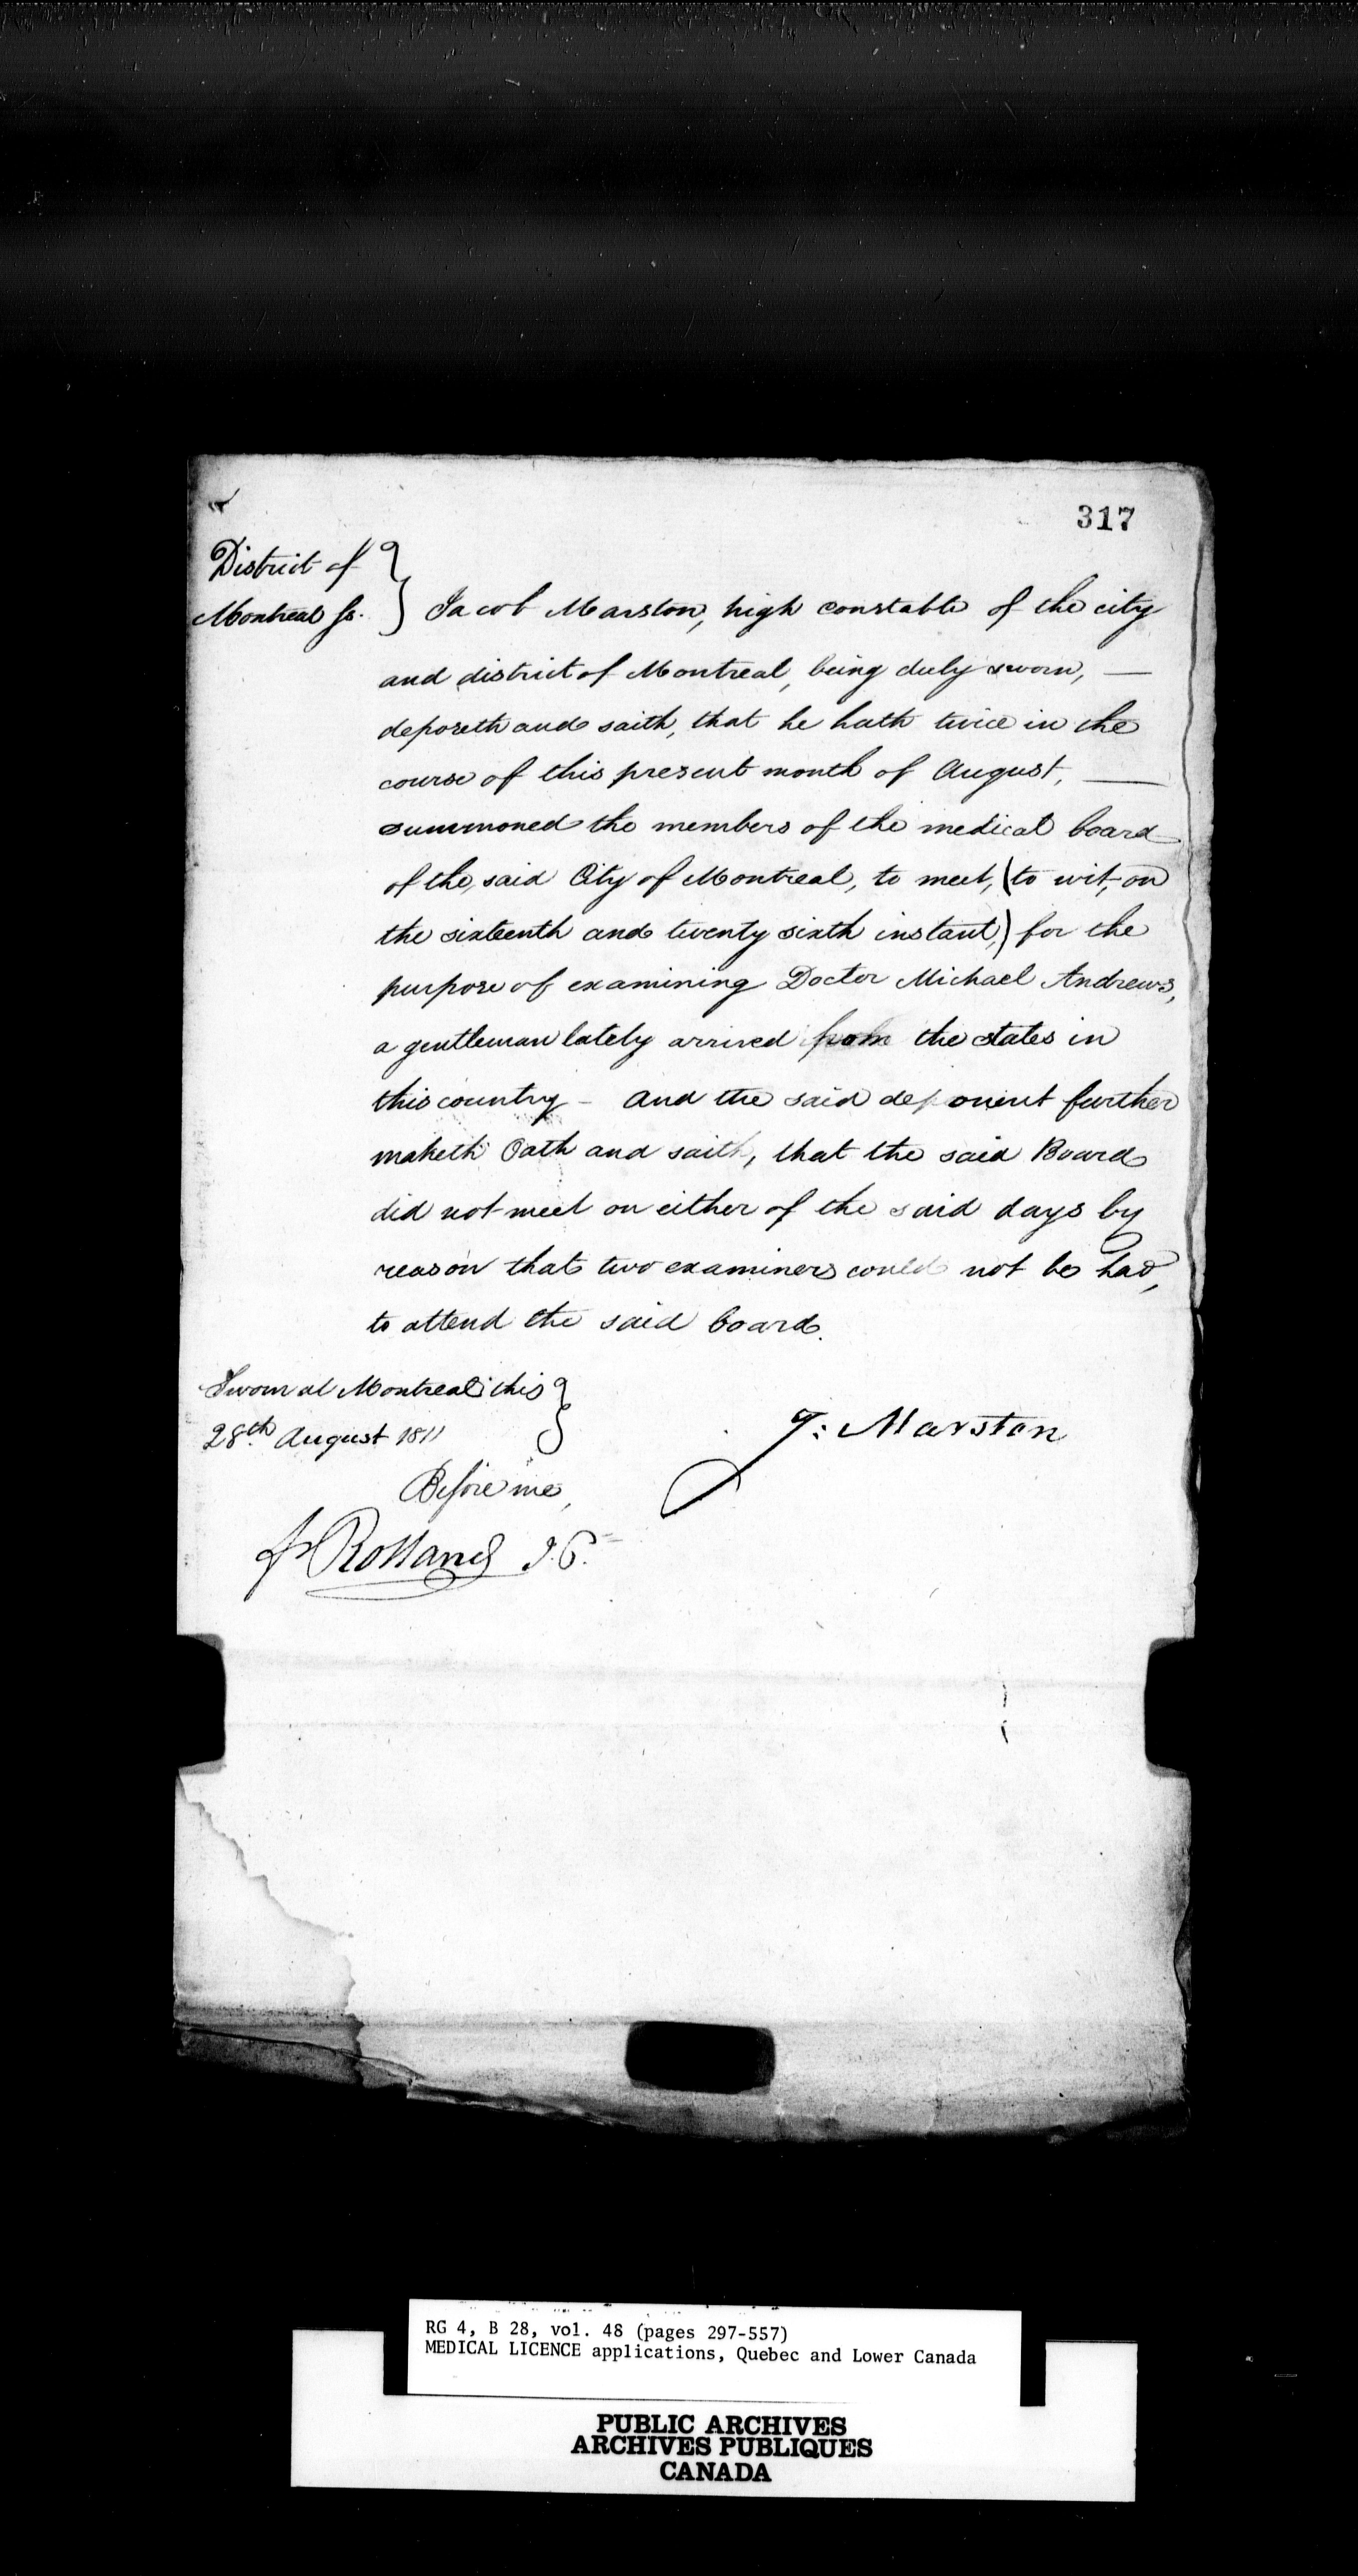 317
District of }
Montreal ss. } Jacob Marston, high constable of the city
and district of Montreal, being duly sworn, —
deposeth and saith, that he hath twice in the
course of this present month of August, —
summoned the members of the medical board
of the said City of Montreal, to meet, (to wit, on
the sixteenth and twenty sixth instant,) for the
purpose of examining Doctor Michael Andrews,
a gentleman lately arrived from the states in
this country - and the said deponent further
maketh Oath and saith, that the said Board
did not meet on either of the said days by
reason that two examiners could not be had,
to attend the said board.
Sworn at Montreal this }
28th August 1811
J: Marston
Before me,
Rolland J.P.
RG 4, B 28, vol. 48 (pages 297-557)
MEDICAL LICENCE applications, Quebec and Lower Canada
PUBLIC ARCHIVES
ARCHIVES PUBLIQUES
CANADA